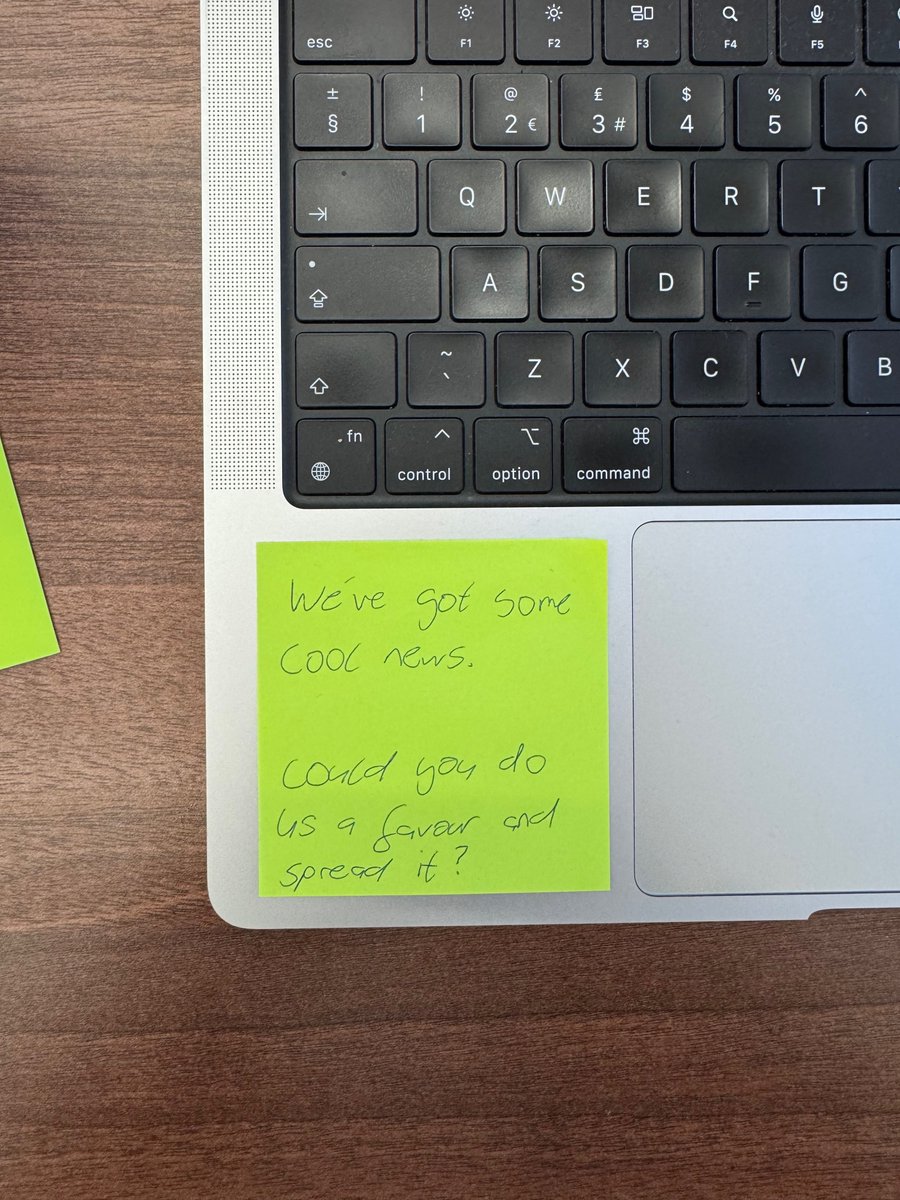 esc F1 F2 F3 F4 F5
± ! @ £ $ % ^
§ 1 2 € 3 # 4 5 6
Q W E R T
A S D F G
~
` Z X C V B
fn ^ ⌥ ⌘
control option command
We've got some
cool news.
Could you do
us a favour and
spread it?